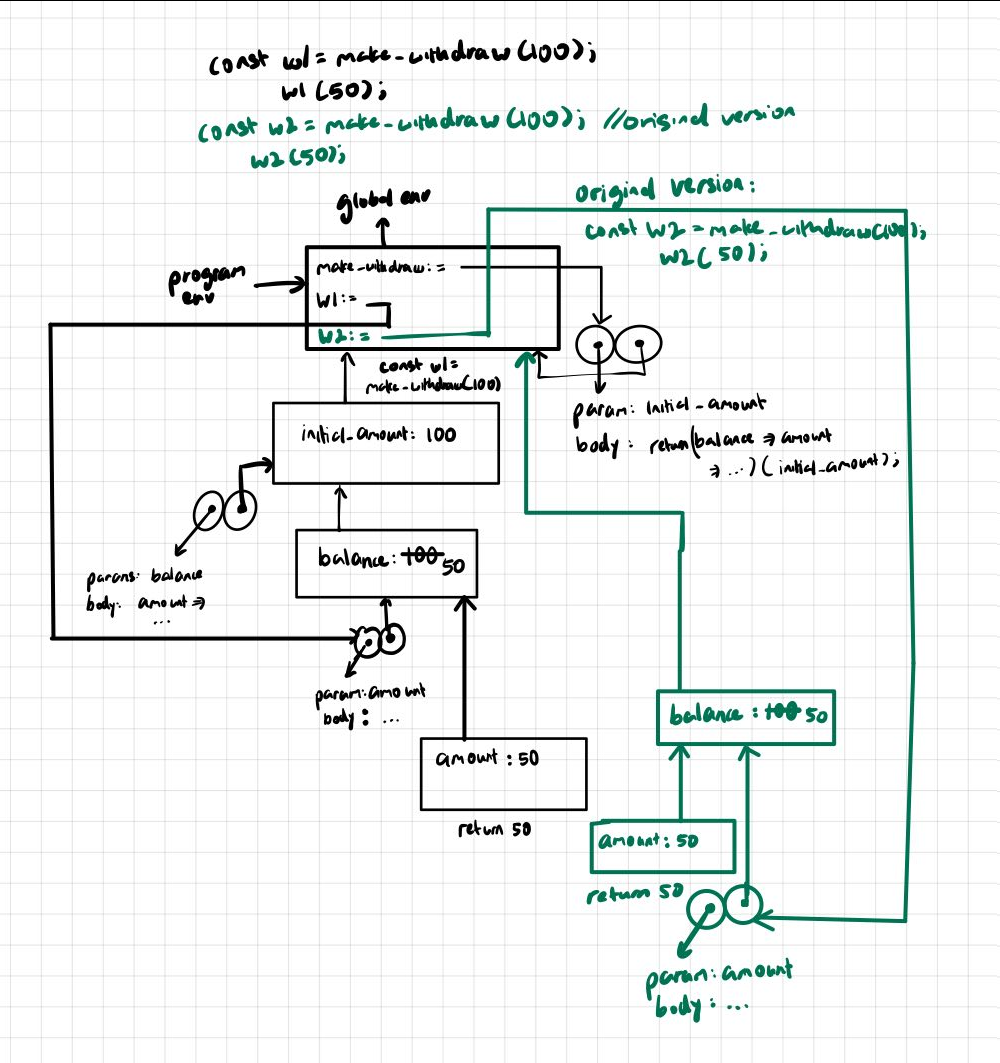 const w1 = make_withdraw(100);
w1(50);
const w2 = make_withdraw(100); //original version
w2(50);
original version:
const W2 = make_withdraw(100);
W2(50);
global env
program
env
make_withdraw:=
W1:=
W2:=
const w1=
make_withdraw(100)
param: initial_amount
body: return(balance ⇒ amount
⇒ ...)(initial_amount);
initial_amount: 100
params: balance
body: amount ⇒
...
balance: 100 50
param: amount
body: ...
amount: 50
return 50
balance: 100 50
amount: 50
return 50
param: amount
body: ...